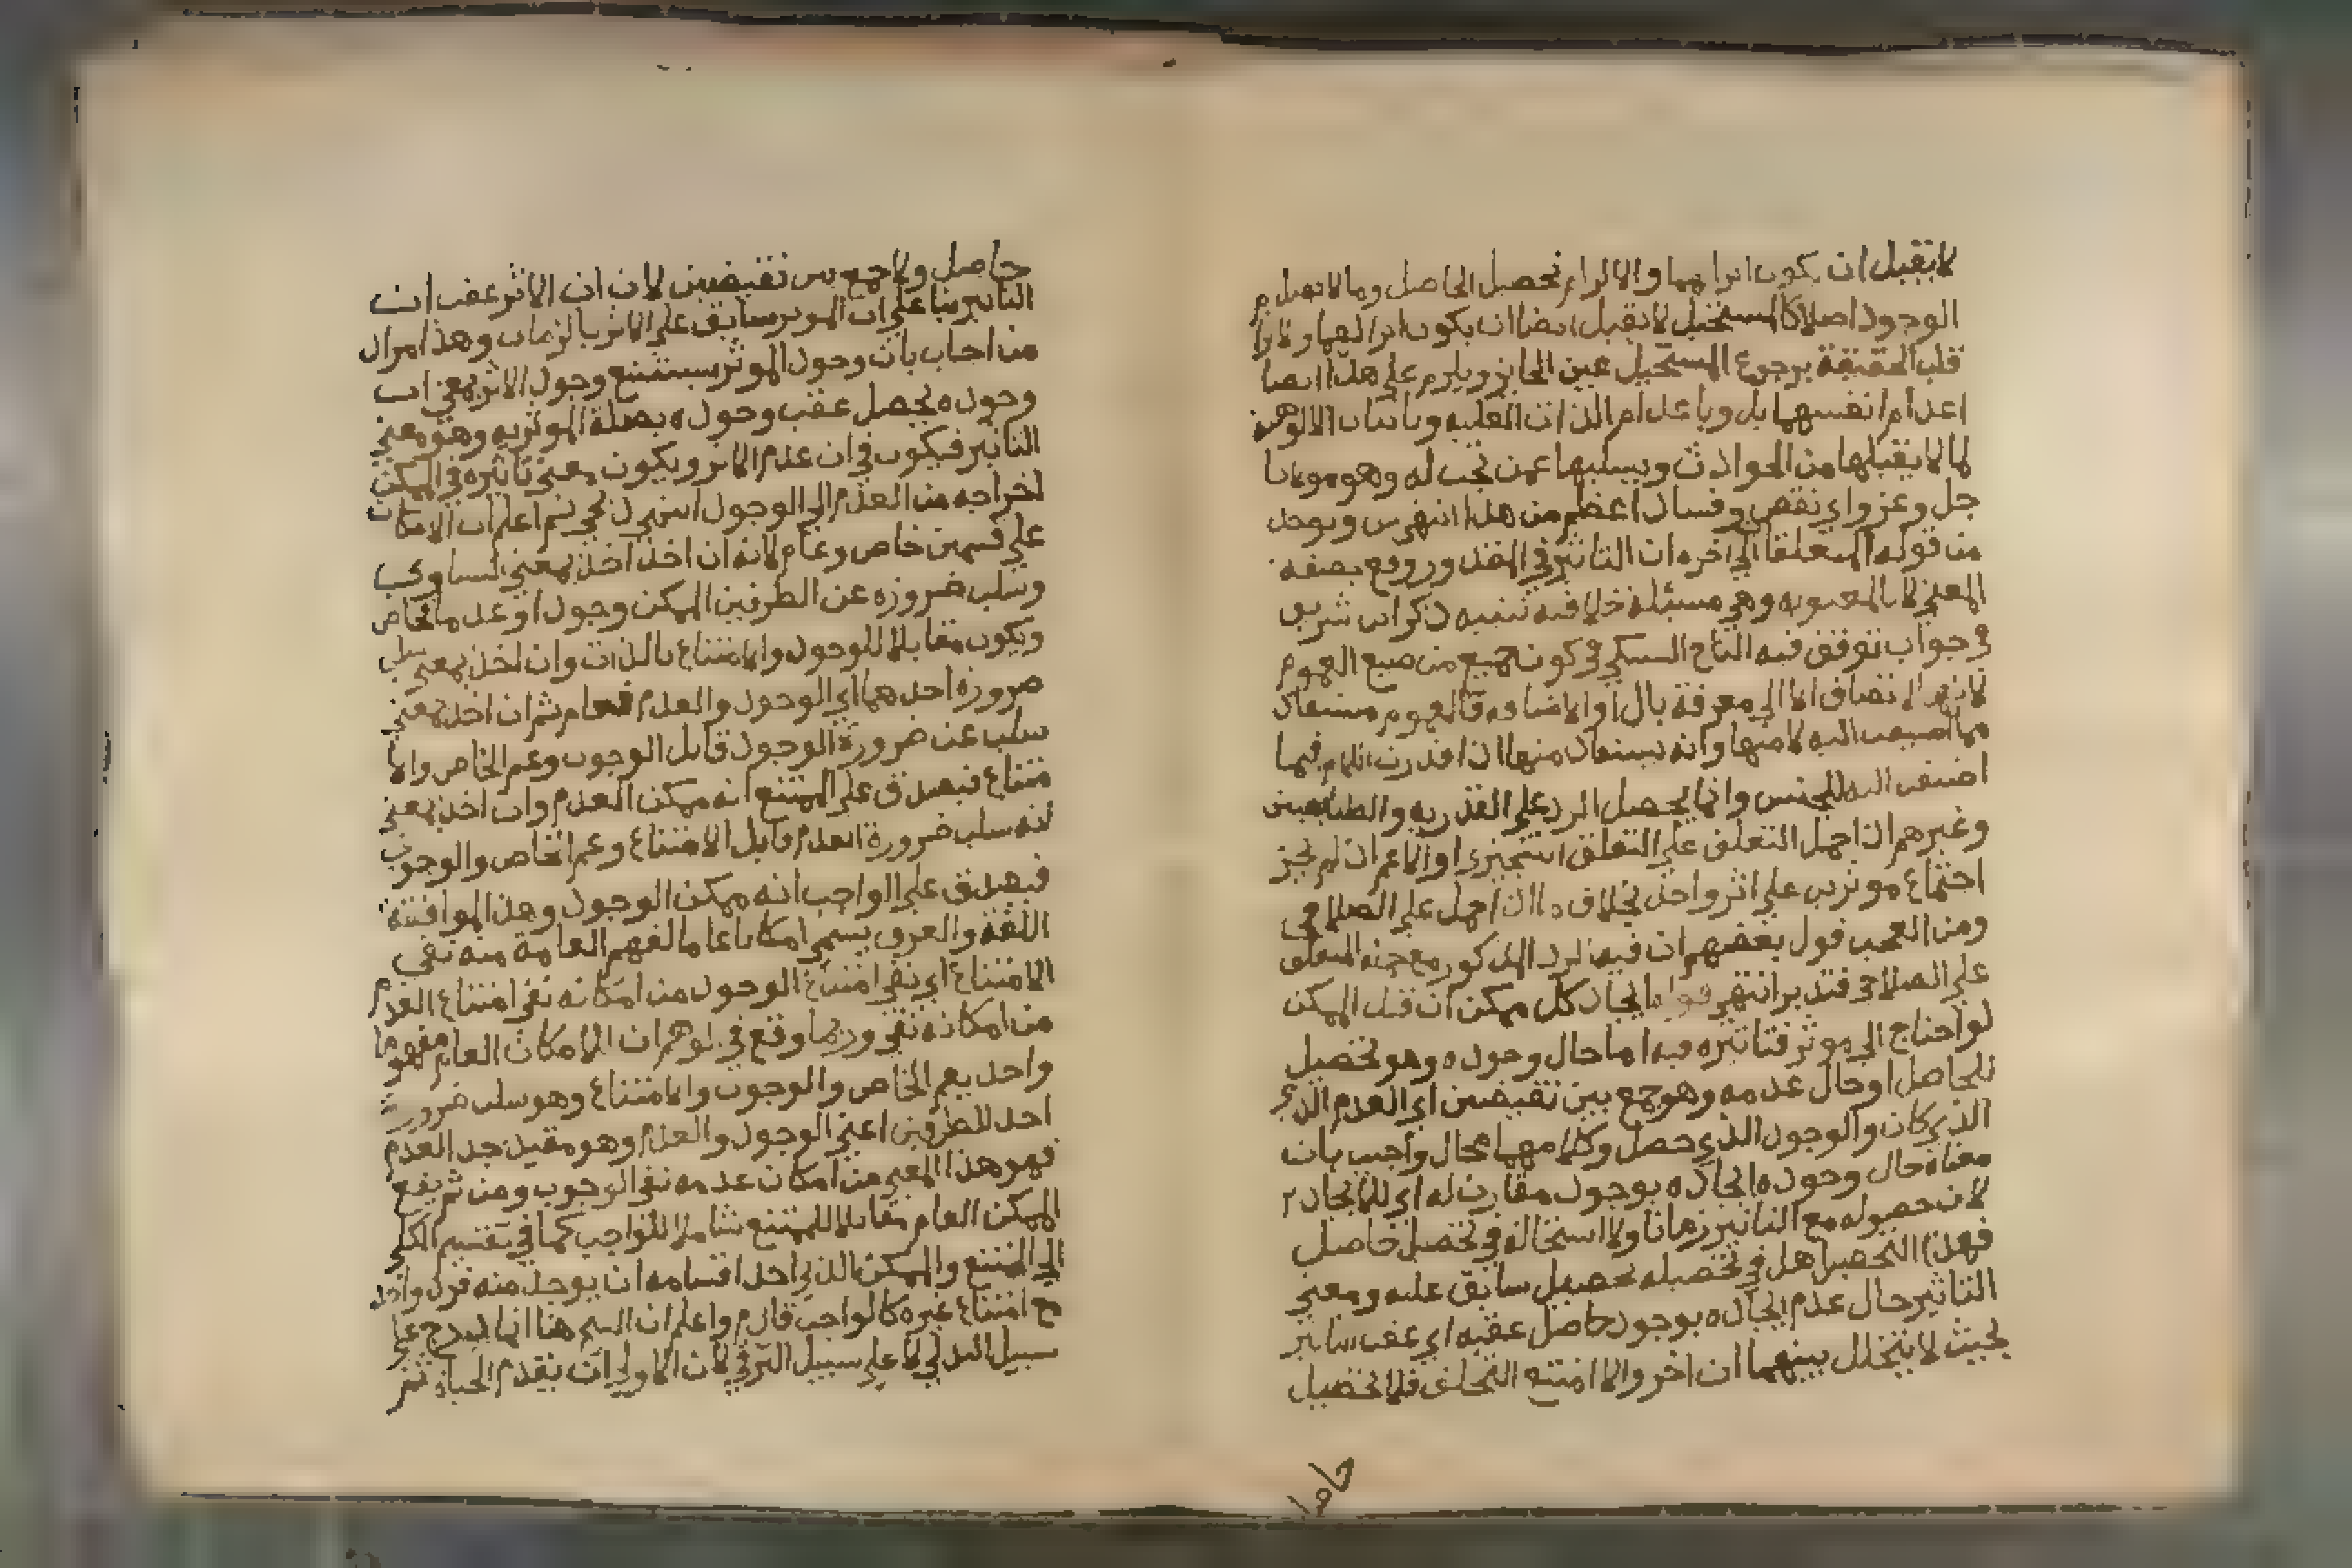 لا يقبل ان يكون اثرا لهما والا لزم تحصيل الحاصل وما لا يقبل
الوجود اصلا كالمستحيل لا يقبل ايضا ان يكون اثرا لهما والا
قلب الحقيقة برجوع المستحيل عين الجائز ويلزم على هذا ايضا
اعدام انفسهما بل وباعدام الذات العلية وباثبات الالوهية
لما لا يقبلها من الحوادث ويسلبها عمن تجب له وهو مولانا
جل وعز واي نقص وفساد اعظم من هذا انتهى س ويوخذ
من قوله المتعلقا الى اخره ان التاثير في المقدور وقع بصفه
المعنى لا بالمعنويه وهي مسئلة خلافيه تنبيه ذكر ابن شريف
في جواب توقف فيه التاج السبكي في كون جميع من صيغ العموم
لانها لا تضاف الا الى معرفة بال او الاضافه فالعموم مستفاد
مما اضيفت اليه لا منها وانه يستفاد منها ان قدرت اللام فيما
اضيفت اليه للجنس وانما يحصل الرد على القدريه والطبايعيين
وغيرهم ان احمل التعلق على التعلق التنجيزي او الاعم ان لم يجز
اجتماع موثرين على اثر واحد بخلاف ما ان احمل على الصلاحي
ومن العجب قول بعضهم ان فيه الرد المذكور مع حمله المتعلق
على الصلاحي فتدبر انتهى قوله ايجاد كل ممكن ان قيل الممكن
لو احتاج الى موثر فتاثيره فيه اما حال وجوده وهو تحصيل
للحاصل او حال عدمه وهو جمع بين نقيضين اي العدم الذي
الذي كان والوجود الذي حصل وكلا منهما محال واجيب بان
معناه حال وجوده ايجاده بوجود مقارن له اي للايجاد
لان حصوله مع التاثير زمانا ولا استحالة في تحصيل حاصل
فهذا التحصيل هل في تحصيله تحصيل سابق عليه ومعنى
التاثير حال عدم ايجاده بوجود حاصل عقبه اي عقب التاثير
بحيث لا يتخلل بينهما ان اخر والا امتنع التخلف فلا تحصيل
حاصل
حاصل ولا جمع بين نقيضين لان ان الاثر عقب ان
التاثير بنا على ان الموثر سابق على الاثر بالزمان وهذا مراد
من اجاب بان وجود الموثر يستتبع وجود الاثر بمعنى ان
وجوده يحصل عقب وجوده بصلة الموثريه وهو معنى
التاثير فيكون في ان عدم الاثر ويكون معنى تاثيره في الممكن
اخراجه من العدم الى الوجود انتهى ثم اعلم ان الامكان
على قسمين خاص وعام لانه ان اخذ اخذ بمعنى
وسلب ضروره عن الطرفين الممكن وجودا وعدما فخاص
ويكون مقابلا للوجود والامتناع بالذات وان اخذ بمعنى سلب
ضرورة احدهما اي الوجود والعدم فعام ثم ان اخذ بمعنى
سلب عن ضرورة الوجود قابل الوجوب وعم الخاص والا
متناع فيصدق على الممتنع انه ممكن العدم وان اخذ بمعنى
انه سلب ضرورة العدم قابل الامتناع وعم الخاص والوجوب
فيصدق على الواجب انه ممكن الوجود وهذا لموافقته
اللغة والعرف يسمى امكانا عاما لفهم العامة منه نفي
الامتناع اي نفي امتناع الوجود من امكانه نفي امتناع العدم
من امكانه نفي وربما وقع في الوهم ان للامكان العام مفهوما هو
واحد يعم الخاص والوجوب والامتناع وهو سلب ضرورة
احد الطرفين اعني الوجود والعدم وهو مقيد جد العدم
فهم هذا المعنى من امكان عدمه نفي الوجوب ومن ثم يقع
الممكن العام مقابلا للممتنع شاملا للواجب كما في تقسيم الكلي
الى الممتنع والممكن الذي احد اقسامه ان يوجد منه فرد واحد
مع امتناع غيره كالواجب قادم واعلم ان الشيخ هنا انما تدرج على
سبيل التدلي لا على سبيل الترقي لان الاولى ان يقدم الحياة ثم